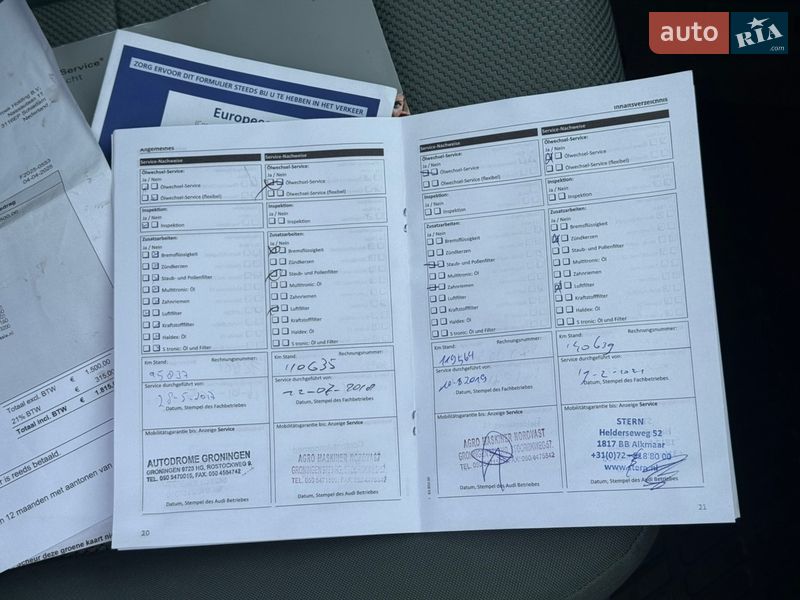 auto RIA .com
Service®
ZORG ERVOOR DIT FORMULIER STEEDS BIJ U TE HEBBEN IN HET VERKEER
Holding B.V.
Nederland
04-04-2025
Totaal excl. BTW € 1.500,00
21% BTW € 315,00
Totaal incl. BTW € 1.815,
er is reeds betaald.
12 maanden met aantonen van
neur deze groene kaart
Allgemeines
Service-Nachweise
Ölwechsel-Service:
Ja / Nein
Ölwechsel-Service
Ölwechsel-Service (flexibel)
Inspektion:
Ja / Nein
Inspektion
Zusatzarbeiten:
Ja / Nein
Bremsflüssigkeit
Zündkerzen
Staub- und Pollenfilter
Multitronic: Öl
Zahnriemen
Luftfilter
Kraftstofffilter
Haldex: Öl
S tronic: Öl und Filter
Km Stand: Rechnungsnummer:
95837
Service durchgeführt von:
28-5-2017
Datum, Stempel des Fachbetriebes
Mobilitätsgarantie bis: Anzeige Service
AUTODROME GRONINGEN
GRONINGEN 9723 HG, ROSTOCKWEG 9.
Datum, Stempel des Audi Betriebes
20
Service-Nachweise
Ölwechsel-Service:
Ja / Nein
Ölwechsel-Service
Ölwechsel-Service (flexibel)
Inspektion:
Ja / Nein
Inspektion
Zusatzarbeiten:
Ja / Nein
Bremsflüssigkeit
Zündkerzen
Staub- und Pollenfilter
Multitronic: Öl
Zahnriemen
Luftfilter
Kraftstofffilter
Haldex: Öl
S tronic: Öl und Filter
Km Stand: Rechnungsnummer:
110635
Service durchgeführt von:
12-07-2018
Datum, Stempel des Fachbetriebes
Mobilitätsgarantie bis: Anzeige Service
AGRO MASKINER NORDVAST
Datum, Stempel des Audi Betriebes
Inhaltsverzeichnis
Service-Nachweise
Ölwechsel-Service:
Ja / Nein
Ölwechsel-Service
Ölwechsel-Service (flexibel)
Inspektion:
Ja / Nein
Inspektion
Zusatzarbeiten:
Ja / Nein
Bremsflüssigkeit
Zündkerzen
Staub- und Pollenfilter
Multitronic: Öl
Zahnriemen
Luftfilter
Kraftstofffilter
Haldex: Öl
S tronic: Öl und Filter
Km Stand: Rechnungsnummer:
119561
Service durchgeführt von:
Datum, Stempel des Fachbetriebes
Mobilitätsgarantie bis: Anzeige Service
AGRO MASKINER NORDVAST
Datum, Stempel des Audi Betriebes
Service-Nachweise
Ölwechsel-Service:
Ja / Nein
Ölwechsel-Service
Ölwechsel-Service (flexibel)
Inspektion:
Ja / Nein
Inspektion
Zusatzarbeiten:
Ja / Nein
Bremsflüssigkeit
Zündkerzen
Staub- und Pollenfilter
Multitronic: Öl
Zahnriemen
Luftfilter
Kraftstofffilter
Haldex: Öl
S tronic: Öl und Filter
Km Stand: Rechnungsnummer:
140639
Service durchgeführt von:
Datum, Stempel des Fachbetriebes
Mobilitätsgarantie bis: Anzeige Service
STERN
Helderseweg 52
1817 BB Alkmaar
www.stern.nl
Datum, Stempel des Audi Betriebes
21